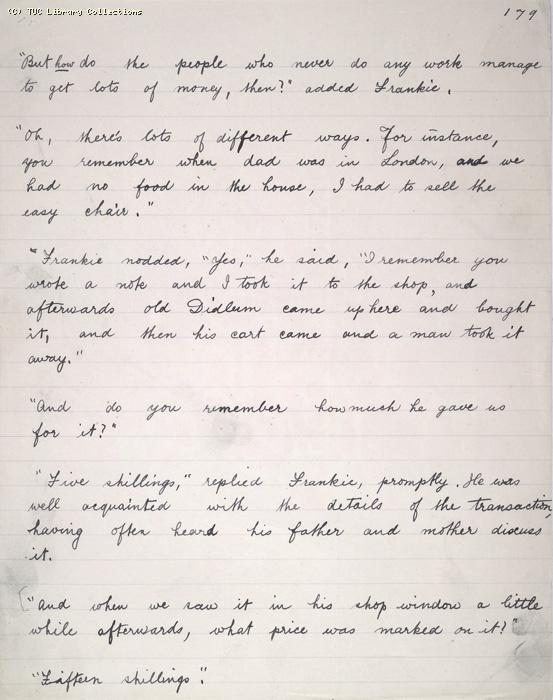 (C) TUC Library Collections
179
"But how do the people who never do any work manage
to get lots of money, then?" added Frankie.
"Oh, there's lots of different ways. For instance,
you remember when dad was in London, and we
had no food in the house, I had to sell the
easy chair."
"Frankie nodded, "Yes," he said, "I remember you
wrote a note and I took it to the shop, and
afterwards old Didlum came up here and bought
it, and then his cart came and a man took it
away."
"And do you remember how much he gave us
for it?"
"Five shillings," replied Frankie, promptly. He was
well acquainted with the details of the transaction,
having often heard his father and mother discuss
it.
"And when we saw it in his shop window a little
while afterwards, what price was marked on it?"
"Fifteen shillings".